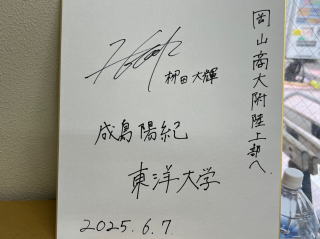 岡山商大附陸上部へ
栁田大輝
成島陽紀
東洋大学
2025.6.7.